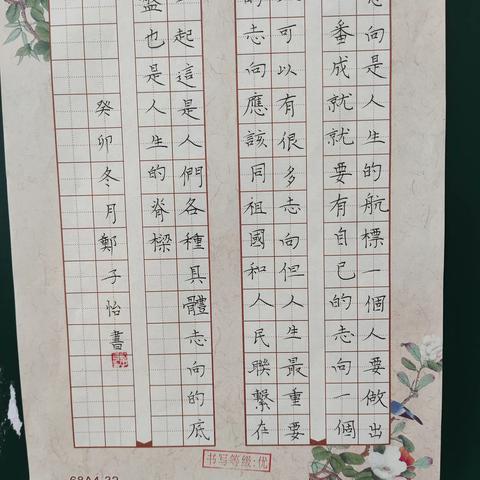 志向是人生的航標一個人要做出
番成就就要有自己的志向一個
人可以有很多志向但人生最重要
的志向應該同祖國和人民聯繫在
起這是人們各種具體志向的底
盤也是人生的脊樑
癸卯冬月鄭子怡書
书写等级:优